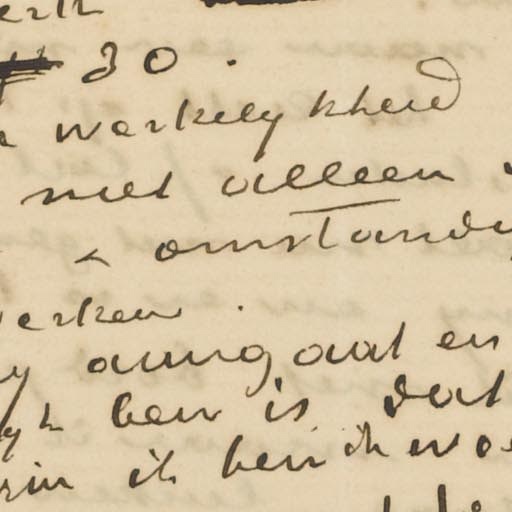 30.
werkelykheid
niet alleen
omstandig
werken.
aangaat en
ben is dat
ik ben ik